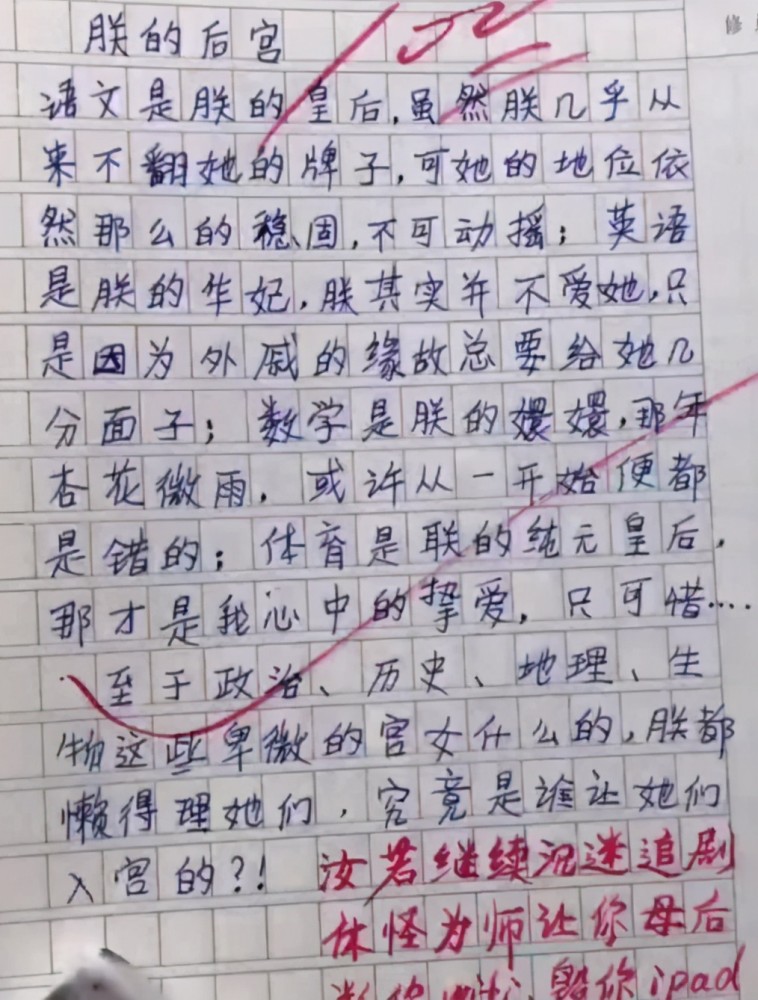 朕的后宫
修
语文是朕的皇后,虽然朕几乎从
来不翻她的牌子,可她的地位依
然那么的稳固,不可动摇;英语
是朕的华妃,朕其实并不爱她,只
是因为外戚的缘故总要给她几
分面子;数学是朕的嬛嬛,那年
杏花微雨,或许从一开始便都
是错的;体育是联的纯元皇后,
那才是我心中的挚爱,只可惜....
..至于政治、历史、地理、生
物这些卑微的宫女什么的,朕都
懒得理她们,究竟是谁让她们
入宫的?!
汝若继续沉迷追剧
休怪为师让你母后
断你wifi,毁你ipad